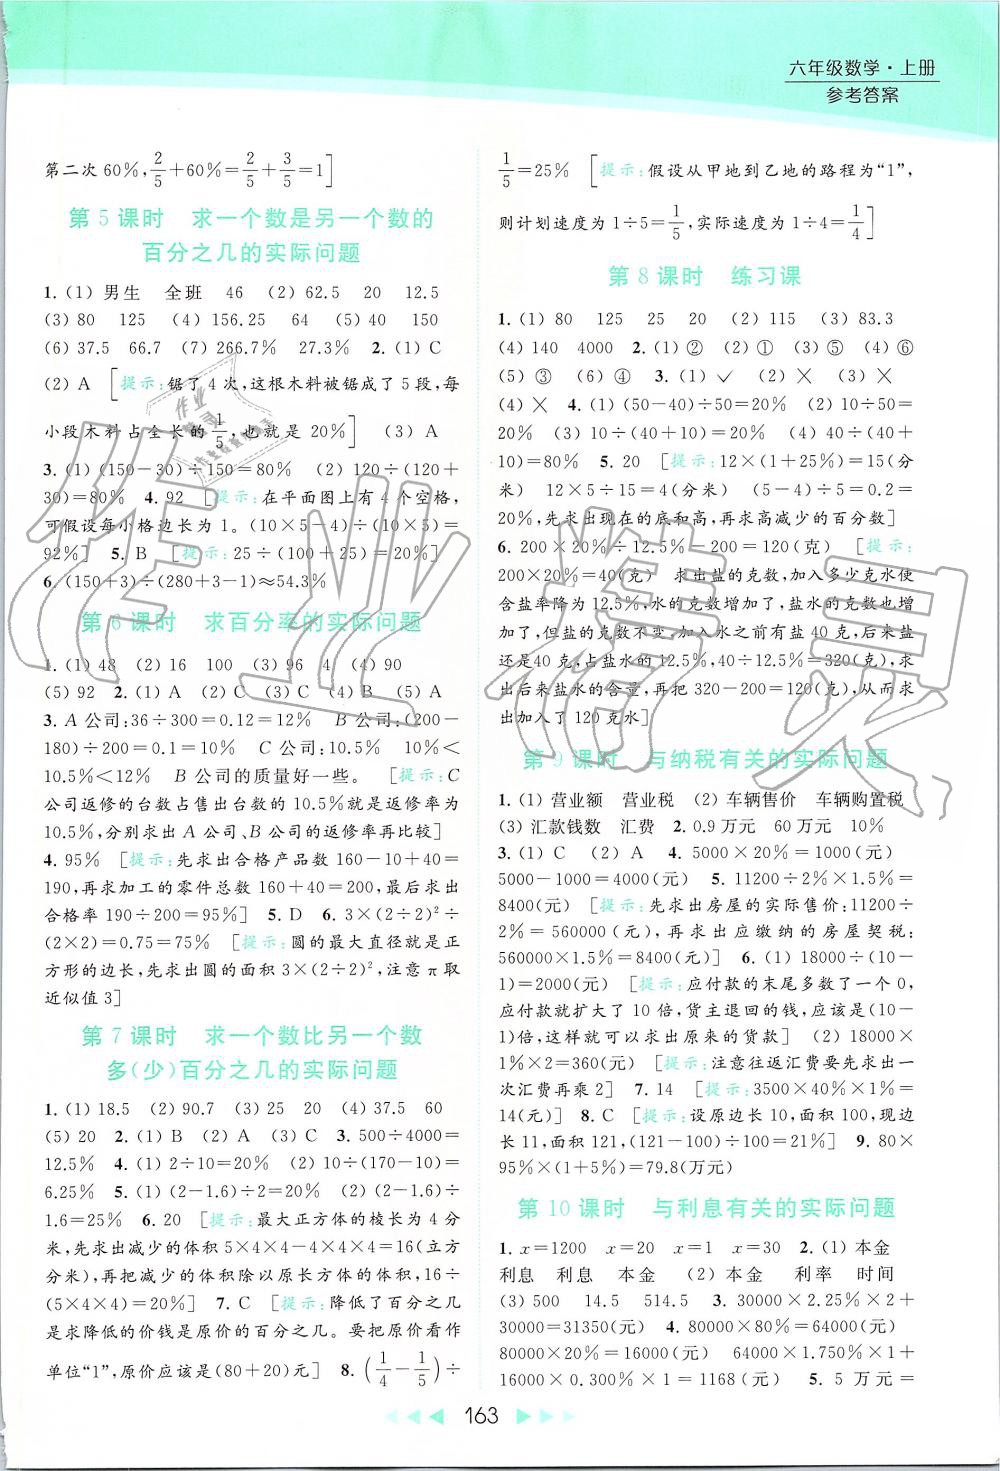 六年级数学·上册
参考答案
第二次 60%,2/5+60%=2/5+3/5=1]
第 5 课时　求一个数是另一个数的
百分之几的实际问题
1. (1) 男生　全班　46　(2) 62.5　20　12.5
(3) 80　125　(4) 156.25　64　(5) 40　150
(6) 37.5　66.7　(7) 266.7%　27.3%　2. (1) C
(2) A　[提示:锯了 4 次,这根木料被锯成了 5 段,每
小段木料占全长的1/5,也就是 20%]　(3) A
3. (1) (150-30)÷150=80%　(2) 120÷(120+
30)=80%　4. 92　[提示:在平面图上有 4 个空格,
可假设每小格边长为 1。(10×5-4)÷(10×5)=
92%]　5. B　[提示:25÷(100+25)=20%]
6. (150+3)÷(280+3-1)≈54.3%
第 6 课时　求百分率的实际问题
1. (1) 48　(2) 16　100　(3) 96　4　(4) 90
(5) 92　2. (1) A　(2) C　(3) C　(4) B　(5) A
3. A 公司:36÷300=0.12=12%　B 公司:(200-
180)÷200=0.1=10%　C 公司:10.5%　10%<
10.5%<12%　B 公司的质量好一些。　[提示:C
公司返修的台数占售出台数的 10.5%就是返修率为
10.5%,分别求出 A 公司、B 公司的返修率再比较]
4. 95%　[提示:先求出合格产品数 160-10+40=
190,再求加工的零件总数 160+40=200,最后求出
合格率 190÷200=95%]　5. D　6. 3×(2÷2)²÷
(2×2)=0.75=75%　[提示:圆的最大直径就是正
方形的边长,先求出圆的面积 3×(2÷2)²,注意 π 取
近似值 3]
第 7 课时　求一个数比另一个数
多(少)百分之几的实际问题
1. (1) 18.5　(2) 90.7　(3) 25　20　(4) 37.5　60
(5) 20　2. (1) B　(2) A　(3) C　3. 500÷4000=
12.5%　4. (1) 2÷10=20%　(2) 10÷(170-10)=
6.25%　5. (1) (2-1.6)÷2=20%　(2) (2-1.6)÷
1.6=25%　6. 20　[提示:最大正方体的棱长为 4 分
米,先求出减少的体积 5×4×4-4×4×4=16(立方
分米),再把减少的体积除以原长方体的体积,16÷
(5×4×4)=20%]　7. C　[提示:降低了百分之几
是求降低的价钱是原价的百分之几。要把原价看作
单位“1”,原价应该是(80+20)元]　8. (1/4-1/5)÷
1/5=25%　[提示:假设从甲地到乙地的路程为“1”,
则计划速度为 1÷5=1/5,实际速度为 1÷4=1/4]
第 8 课时　练习课
1. (1) 80　125　25　20　(2) 115　(3) 83.3
(4) 140　4000　2. (1) ②　(2) ①　(3) ⑤　(4) ⑥
(5) ③　(6) ④　3. (1) ✓　(2) ×　(3) ×
(4) ×　4. (1) (50-40)÷50=20%　(2) 10÷50=
20%　(3) 10÷(40+10)=20%　(4) 40÷(40+
10)=80%　5. 20　[提示:12×(1+25%)=15(分
米)　12×5÷15=4(分米)　(5-4)÷5=0.2=
20%,先求出现在的底和高,再求高减少的百分数]
6. 200×20%÷12.5%-200=120(克)　[提示:
200×20%=40(克)　求出盐的克数,加入多少克水使
含盐率降为 12.5%,水的克数增加了,盐水的克数也增
加了,但盐的克数不变,加入水之前有盐 40 克,后来盐
还是40 克,占盐水的 12.5%,40÷12.5%=320(克),求
出后来盐水的含量,再把 320-200=120(克),从而求
出加入了 120 克水]
第 9 课时　与纳税有关的实际问题
1. (1) 营业额　营业税　(2) 车辆售价　车辆购置税
(3) 汇款钱数　汇费　2. 0.9 万元　60 万元　10%
3. (1) C　(2) A　4. 5000×20%=1000(元)
5000-1000=4000(元)　5. 11200÷2%×1.5%=
8400(元)　[提示:先求出房屋的实际售价:11200÷
2%=560000(元),再求出应缴纳的房屋契税:
560000×1.5%=8400(元)]　6. (1) 18000÷(10-
1)=2000(元)　[提示:应付款的末尾多数了一个 0,
应付款就扩大了 10 倍,货主退回的钱,应该是(10-
1)倍,这样就可以求出原来的货款]　(2) 18000×
1%×2=360(元)　[提示:注意往返汇费要先求出一
次汇费再乘 2]　7. 14　[提示:3500×40%×1%=
14(元)]　8. C　[提示:设原边长 10,面积 100,现边
长 11,面积 121,(121-100)÷100=21%]　9. 80×
95%×(1+5%)=79.8(万元)
第 10 课时　与利息有关的实际问题
1. x=1200　x=20　x=1　x=30　2. (1) 本金
利息　利息　本金　(2) 本金　利率　时间
(3) 500　14.5　514.5　3. 30000×2.25%×2+
30000=31350(元)　4. 80000×80%=64000(元)
80000×20%=16000(元)　64000×1.750%×1+
16000×0.300%×1=1168(元)　5. 5 万元=
163